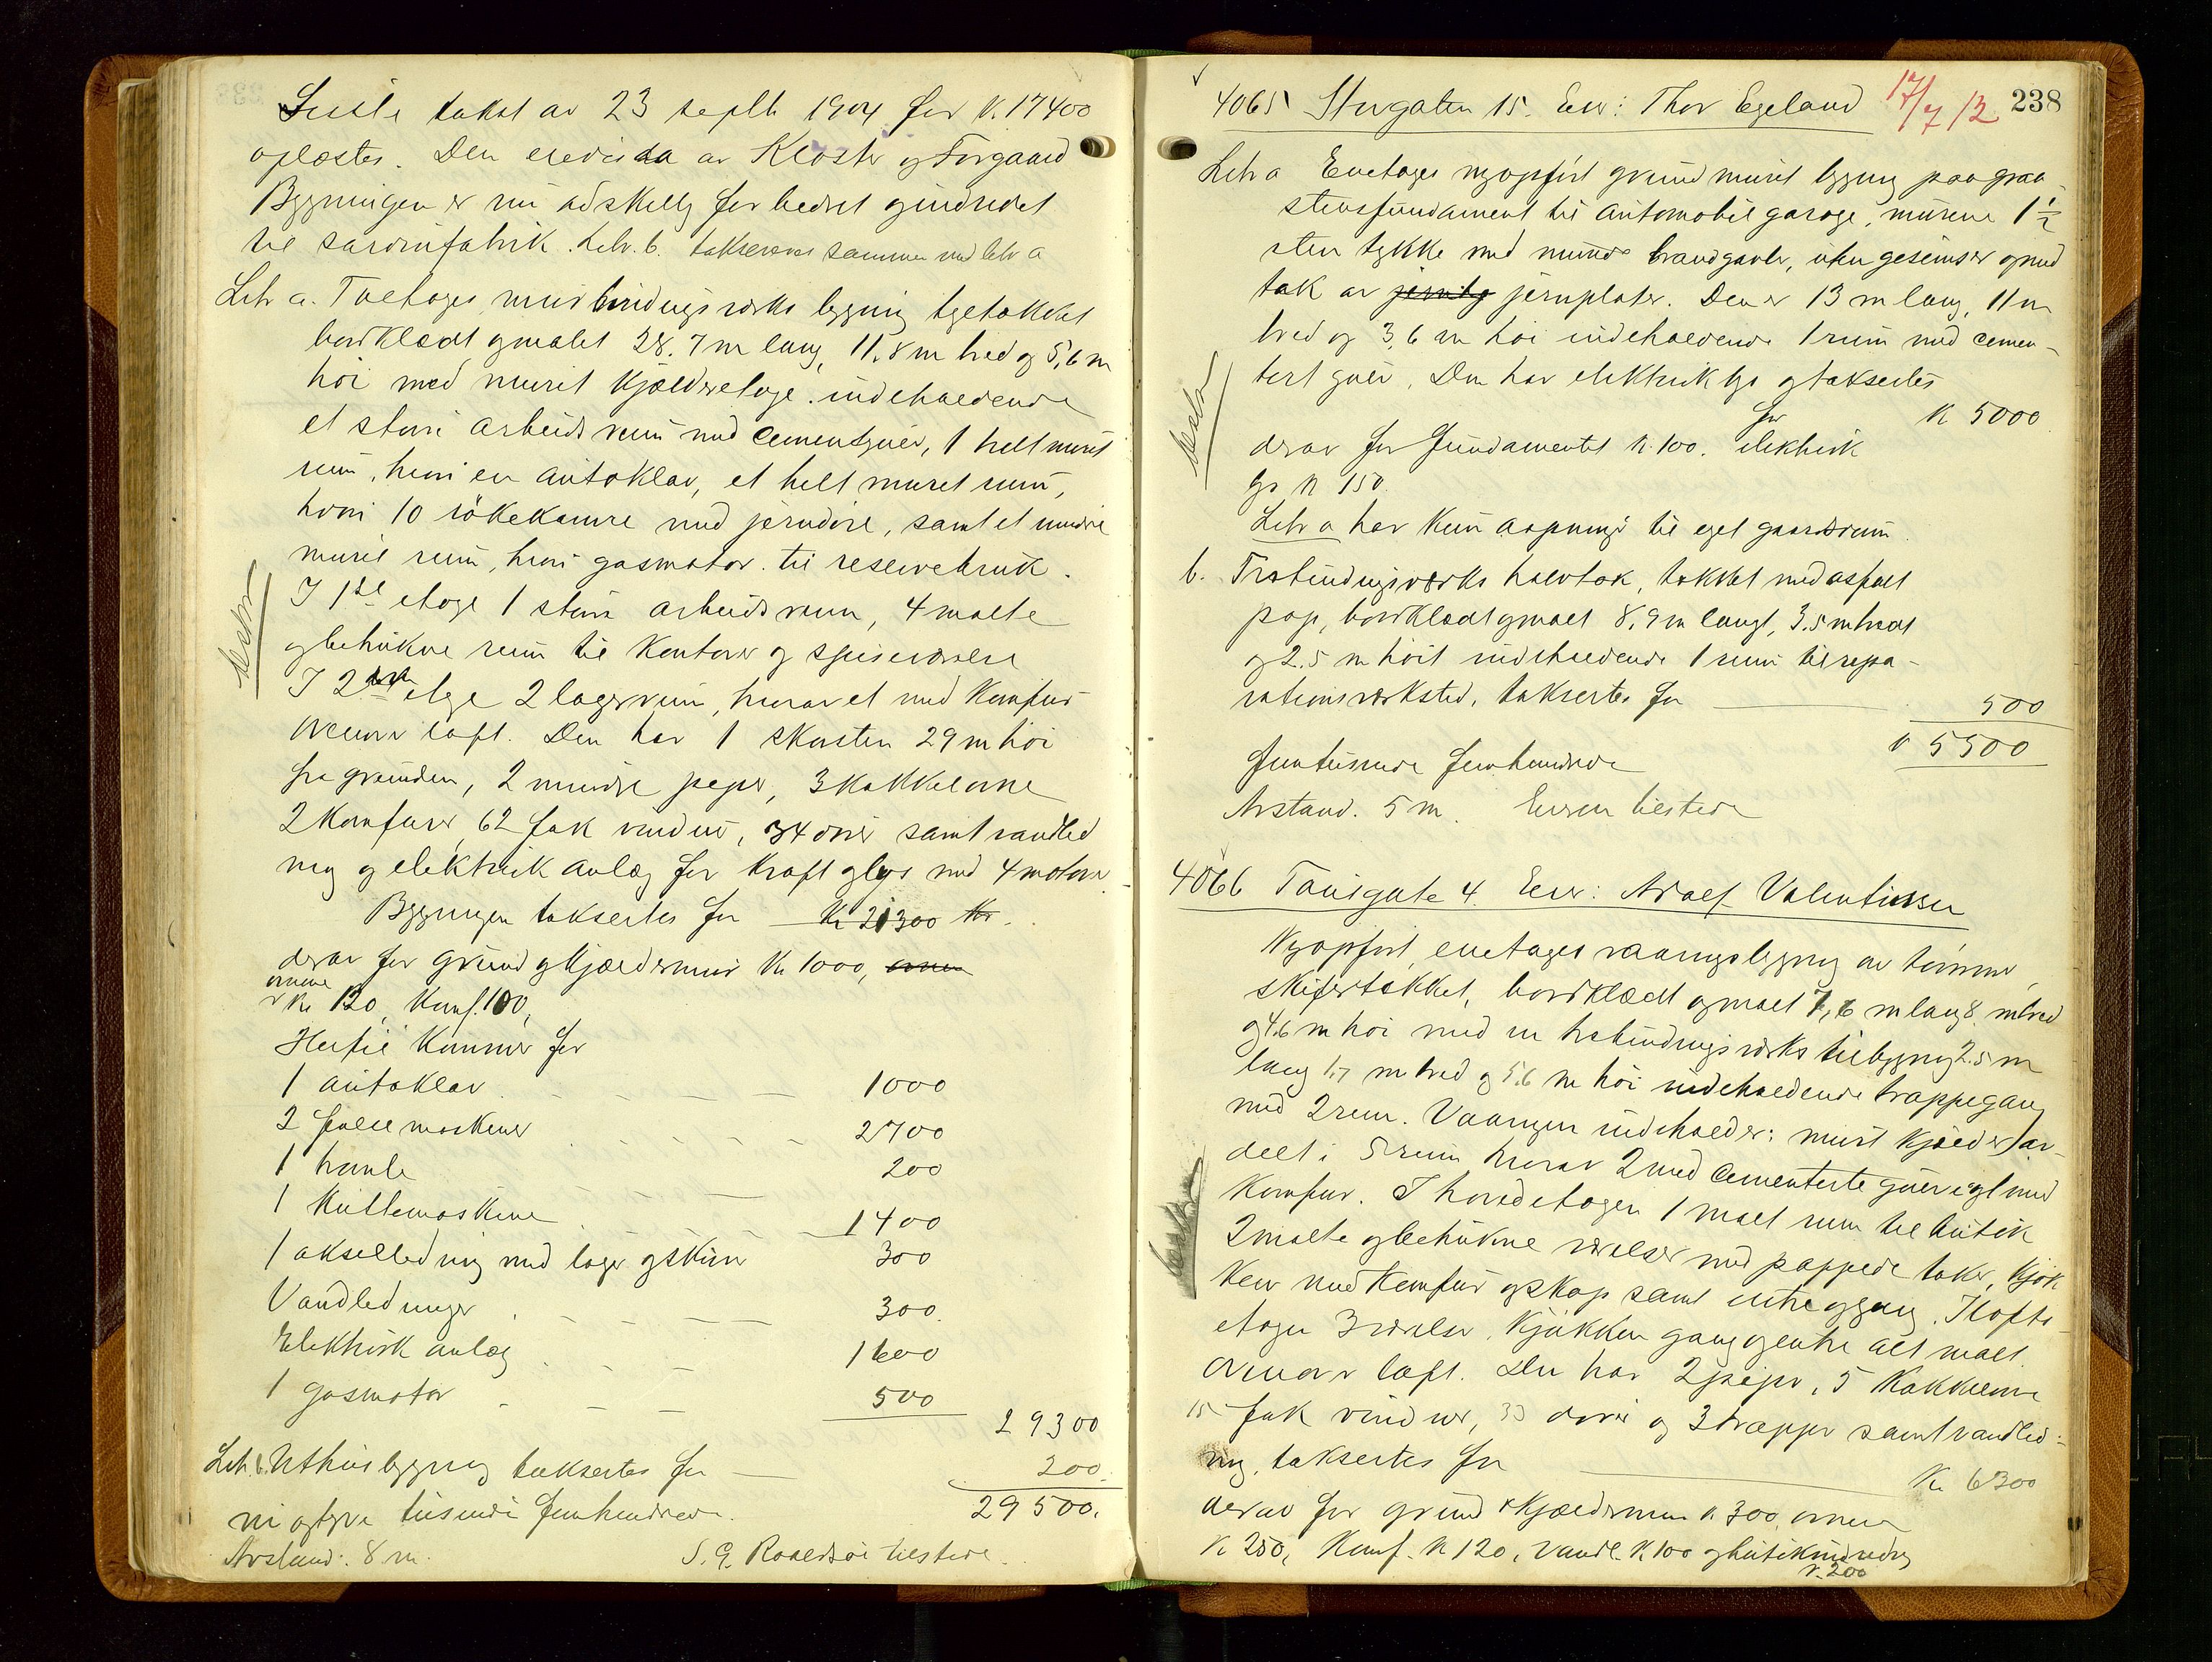 Siste takst av 23 septb 1904 for K. 17400
oplæstes. Den av Kloster og Torgaard
Bygningen er nu adskellig forbedret og indredet
til sardinfabrik. Litr. b. takseres sammen med litr a
Litr a. Toetages murbindingsværks bygning tegltækket
bordklædt og malet 28.7 m lang, 11.8 m bred og 5,6 m
høi med muret kjælderetage indeholdende
et større arbeidsrum med cementgulv, 1 helt muret
rum, hvori en autoklav, et helt muret rum,
hvori 10 røkekamre med jerndøre, samt et mindre
muret rum, hvori gasmotor til reservebruk.
I 1ste etage 1 større arbeidsrum, 4 malte
og betrukne rum til kontorer og spiseværelse
I 2den etage 2 lagerrum, hvorav et med komfur
ovenover loft. Den har 1 skorsten 29 m høi
fra grunden, 2 mindre piper, 3 kakkelovne
2 komfurer, 62 fak vinduer, 34 dører samt vandled
ning og elektrisk anlæg for kraft og lys med 4 motorer
Bygningen taksertes for Kr 21300 Kr.
derav for grund og kjældermur Kr 1000, ovnen
ovnene
Kr 120, komf. 100,
Hertil kommer for
1 autoklav 1000
2 falsemaskiner 2700
1 tromle 200
1 kuttemaskine 1400
1 akselledning med lager og skiver 300
Vandledninger 300
Elektrisk anlæg 1600
1 gasmotor 500
29300
Litr. b. Uthusbygning taksertes for 200.
29500.
ni og tyve tusinde femhundrede.
Avstand: 8 m. S. G. Roaldsøi tilstede.
4065 Storgaten 15. Eier: Thor Egeland 17/7 12 238
Litr a Enetages nyopført grundmuret bygning paa graa
stensfundament til automobilgarage, murene 1 1/2
sten tykke med murede brandgavler, uten gesimser og med
tak av jernbg jernplater. Den er 13 m lang, 11 m
bred og 3,6 m høi indeholdende 1 rum med cemen-
tert gulv. Den har elektrisk lys og taksertes
for K 5000
derav for fundamentet K. 100. elektrisk
lys K 150.
Litr a har kun aapning til eget gaardsrum.
b. Trebindingsverks halvtak, tækket med asfalt
pap, bordklædt og malt 8,9 m langt, 3.5 m bredt
og 2.5 m høit indeholdende 1 rum til repa-
rationsverksted, taksertes for 500
K 5500
femtusinde femhundrede
Avstand. 5 m. Eieren tilstede
4066 Tausgate 4. Eier: Adolf Valentinsen
Nyopført, enetages vaaningsbygning av tømmer,
skifertækket, bordklædt og malt 7,6 m lang 8 m bred
og 4,6 m høi med en trebindingsverks tilbygning 2.5 m
lang 1,7 m bred og 5,6 m høi indeholdende trappegang
med 2 rum. Vaaningen indeholder: muret kjælder av-
delt i 5 rum hvorav 2 med cementerte gulv og et med
komfur. I hovedetagen 1 malt rum til butik
2 malte og betrukne værelser med pappede taker, kjøk
ken med komfur og skap samt entre og gang. I lofts-
etagen 3 værelser, kjøkken gang og entre alt malt.
ovenover loft. Den har 2 piper, 5 kakkelovne
15 fak vinduer, 33 dører og 3 trapper samt vandled-
ning, taksertes for Kr 6300
derav for grund & kjældermur K. 300, ovnene
K 250, komf. K 120, vandl. K 100 og butikindredng
K. 200